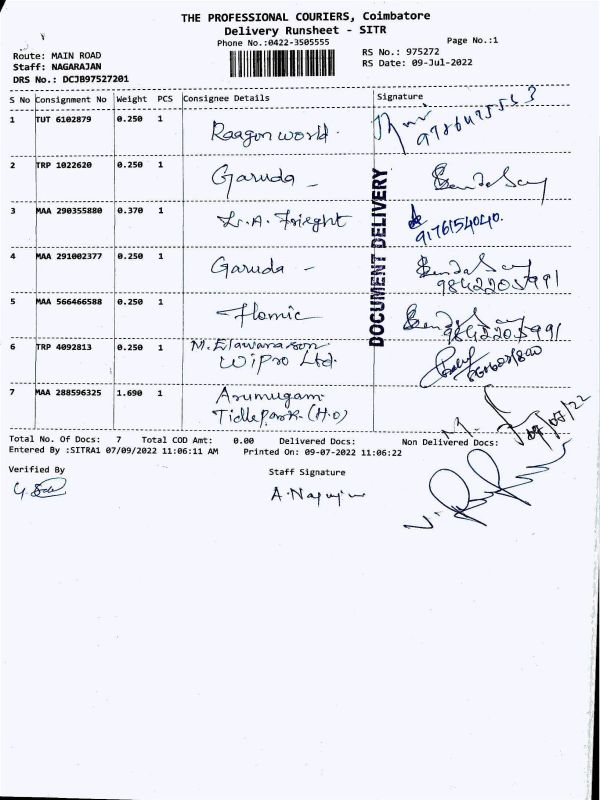 THE PROFESSIONAL COURIERS, Coimbatore
Delivery Runsheet - SITR
Phone No.:0422-3505555
Page No.:1
Route: MAIN ROAD
Staff: NAGARAJAN
DRS No.: DCJB97527201
RS No.: 975272
RS Date: 09-Jul-2022
S No Consignment No Weight PCS Consignee Details Signature
1 TUT 6102879 0.250 1 Raagon world
2 TRP 1022620 0.250 1 Garuda -
3 MAA 290355880 0.370 1 Frieght
9176154040.
4 MAA 291002377 0.250 1 Garuda -
9842205991
5 MAA 566466588 0.250 1 Flomic
9842205991
6 TRP 4092813 0.250 1 M. Elavarason
Wipro Ltd.
7 MAA 288596325 1.690 1 Arumugam
Tidle Park (H.O)
DOCUMENT DELIVERY
09/07/22
Total No. Of Docs: 7 Total COD Amt: 0.00 Delivered Docs: Non Delivered Docs:
Entered By :SITRA1 07/09/2022 11:06:11 AM Printed On: 09-07-2022 11:06:22
Verified By Staff Signature